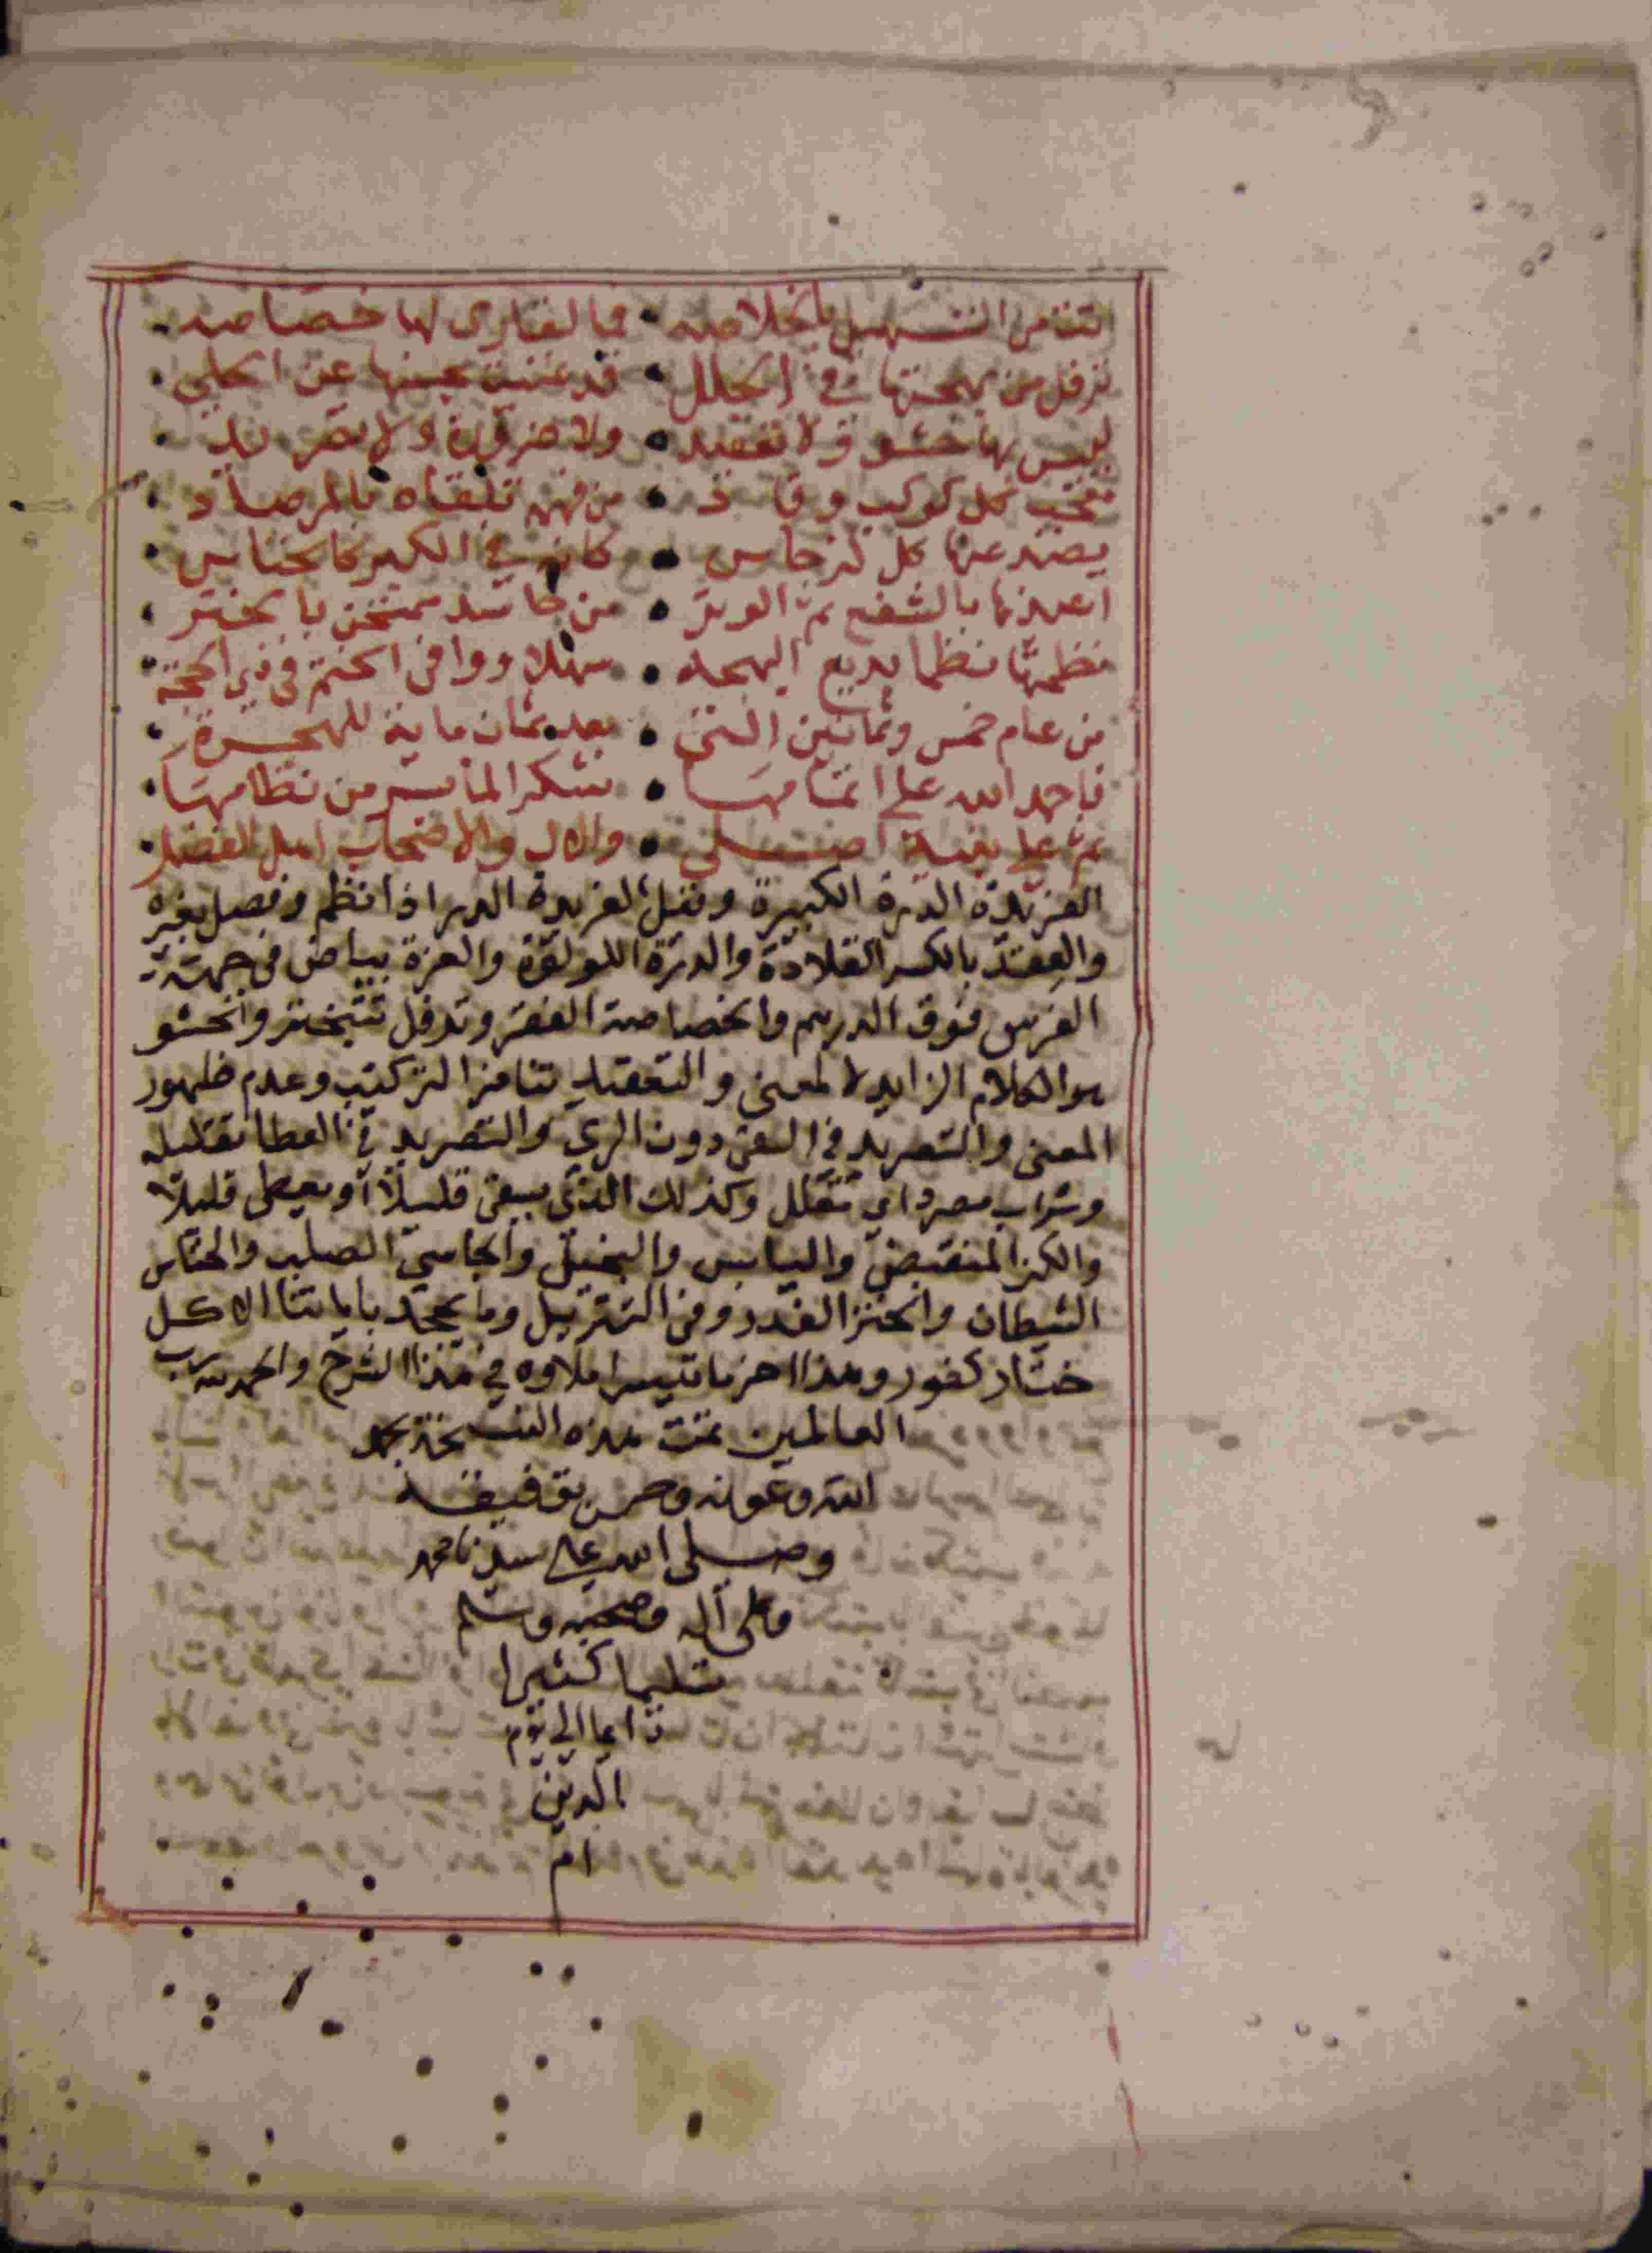 اتت من التسهيل بالخلاصه • فما لقارى لها خصاصه
ترفل من بهجتها في الحلل • قد غنيت بحسنها عن الحلي
ليس بها حشو ولا تعقيد • ولا ضرورة ولا تصريد
تحجب كل كوكب وقاد • من فهمه تلقاه بالمرصاد
يصد عنها كل كز جاس • كانه في الكبر كالخناس
اعيذها بالشفع ثم الوتر • من حاسد ممتحن بالختر
نظمتها نظما بديع البهجه • سهلا ووافى الختم في ذي الحجة
من عام خمس وثمانين التي • بعد ثمان ماية للهجرة
فاحمد الله على اتمامها • نشكر الما يسر من نظامها
ثم على نبيه اصلي • والال والاصحاب اهل الفضل
الفريدة الدرة الكبيرة وقيل الفريدة الدر اذا نظم وفصل بغيره
والعقد بالكسر القلادة والدرة اللولؤة والغرة بياض في جبهة
الفرس فوق الدرهم والخصاصة الفقر وترفل تتبختر والحشو
هو الكلام الزايد لا لمعنى والتعقيد تنافر التركيب وعدم ظهور
المعنى والتصريد في السقي دون الري والتصريد في العطا تقليله
وشراب مصرد اي مقلل وكذلك الذي يسقى قليلا او يعطى قليلا
والكز المنقبض واليابس والبخيل والجاسي الصلب والخناس
الشيطان والختر الغدر وفي التنزيل وما يجحد باياتنا الا كل
ختار كفور وهذا اخر ما تيسر املاوه في هذا الشرح والحمد لله رب
العالمين تمت هذه النسخة بحمد
الله وعونه وحسن توفيقه
وصلى الله على سيدنا محمد
وعلى آله وصحبه وسلم
تسليما كثيرا
دايما الى يوم
الدين
ام